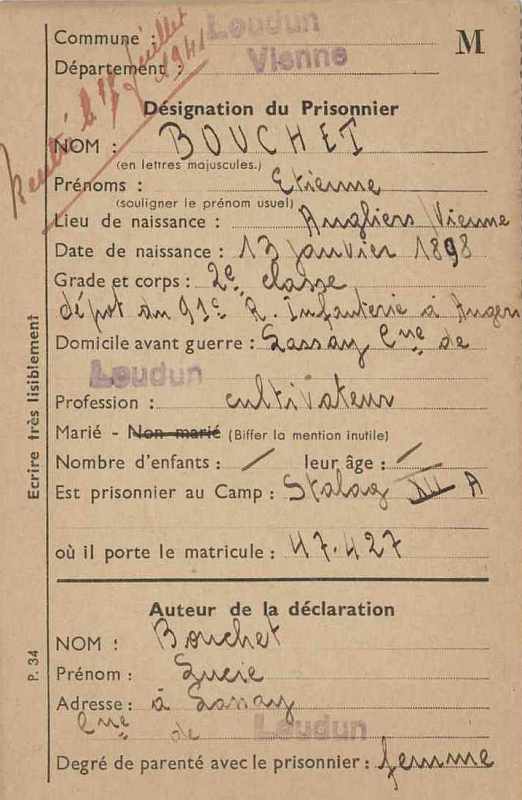 Commune : Loudun
M
Département : Vienne
Rentré le 15 juillet 1941
Désignation du Prisonnier
NOM : BOUCHET
(en lettres majuscules.)
Prénoms : Etienne
(souligner le prénom usuel)
Lieu de naissance : Angliers (Vienne
Date de naissance : 13 janvier 1898
Grade et corps : 2e classe
dépot du 91e R. Infanterie à Angers
Domicile avant guerre : Sassay Cne de
Loudun
Profession : cultivateur
Marié - Non marié (Biffer la mention inutile)
Nombre d'enfants : / leur âge : /
Est prisonnier au Camp : Stalag XII A
où il porte le matricule : 47.427
Auteur de la déclaration
NOM : Bouchet
Prénom : Lucie
Adresse : à Sassay
Cne de Loudun
Degré de parenté avec le prisonnier : femme
Ecrire très lisiblement
P. 34